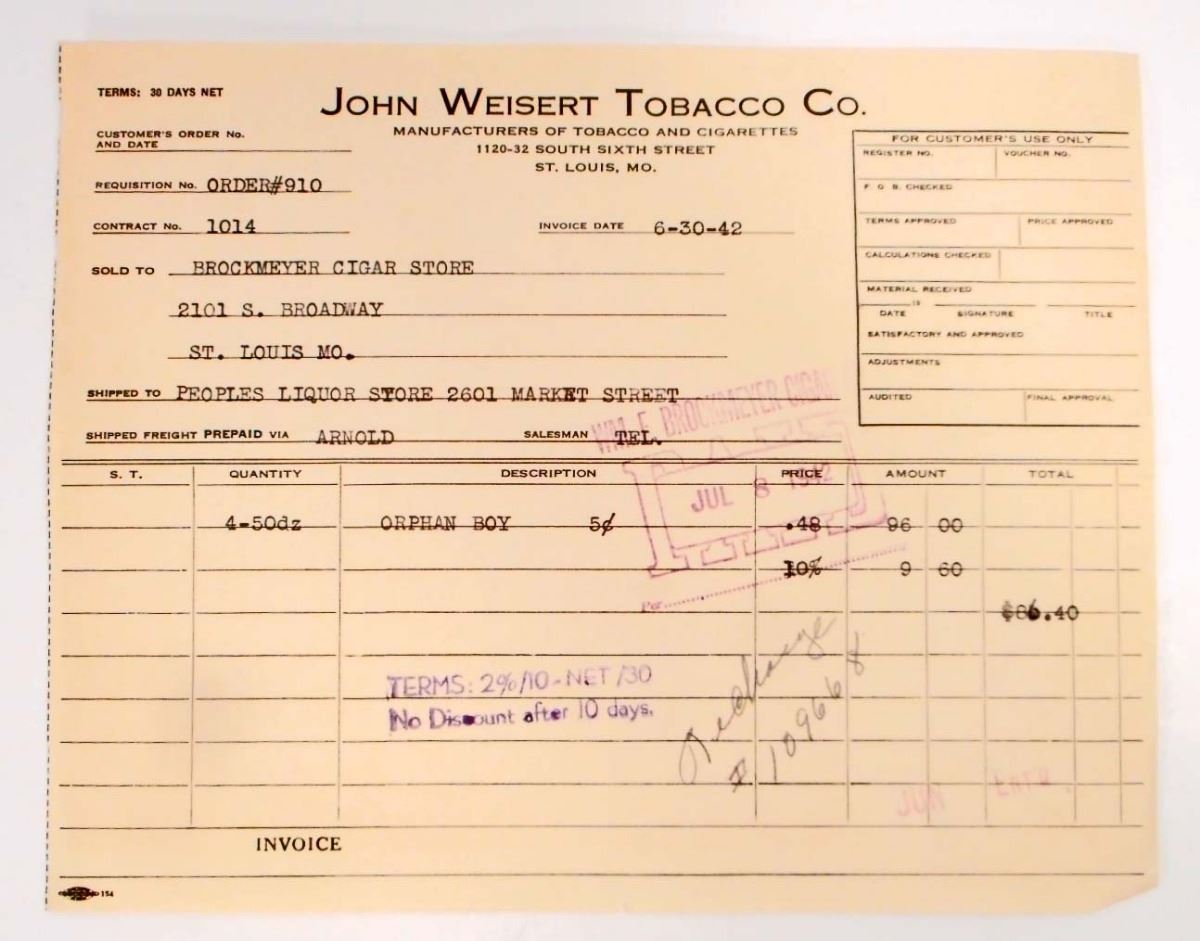 TERMS: 30 DAYS NET
JOHN WEISERT TOBACCO CO.
MANUFACTURERS OF TOBACCO AND CIGARETTES
1120-32 SOUTH SIXTH STREET
ST. LOUIS, MO.
CUSTOMER'S ORDER NO.
AND DATE
REQUISITION NO. ORDER#910
CONTRACT NO. 1014
INVOICE DATE 6-30-42
FOR CUSTOMER'S USE ONLY
REGISTER NO. VOUCHER NO.
F. O B. CHECKED
TERMS APPROVED PRICE APPROVED
CALCULATIONS CHECKED
MATERIAL RECEIVED
19
DATE SIGNATURE TITLE
SATISFACTORY AND APPROVED
ADJUSTMENTS
AUDITED FINAL APPROVAL
SOLD TO BROCKMEYER CIGAR STORE
2101 S. BROADWAY
ST. LOUIS MO.
SHIPPED TO PEOPLES LIQUOR STORE 2601 MARKET STREET
SHIPPED FREIGHT PREPAID VIA ARNOLD SALESMAN TEL.
WM. F. BROCKMEYER CIGAR
PAID
JUL 8 1942
Per
S. T. QUANTITY DESCRIPTION PRICE AMOUNT TOTAL
4-50dz ORPHAN BOY 5¢ .48 96 00
10% 9 60
$86.40
TERMS: 2%/10-NET/30
No Discount after 10 days.
# 109668
JUN ENT'D.
INVOICE
154